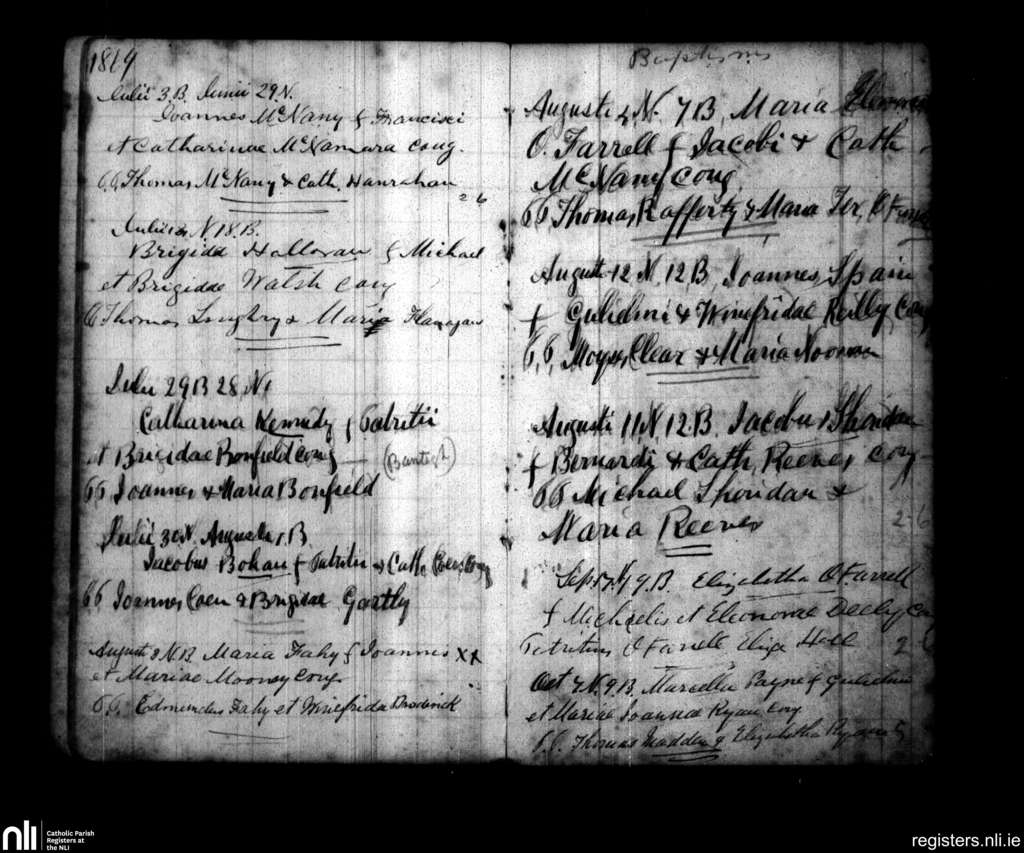 1869
Julii 3 B. Junii 29 N.
Joannes McNany f Francisci
et Catharinae McNamara cong.
66 Thomas McNany & Cath. Hanrahan
2 6
Julii N 18. B.
Brigida Halloran f Michael
et Brigidae Walsh cong
6 Thomas & Maria Flanagan
Julii 29 B 28 N.
Catharina Kennedy f Patritii
et Brigidae Bonfield cong
(Banteigh)
66 Joannes & Maria Bonfield
Julii 30 N. Augusti 1 B
Jacobus Bohan f Patritii & Cath. Coen Cong
66 Joannes Coen & Brigidae Gartly
Augusti 8 N. B Maria Fahy f Joannes XX
et Mariae Mooney Cong
66. Edmundus Fahy et Winefrida Broderick
Baptisms
Augusti 4 N. 7 B, Maria
O. Farrell f Jacobi & Cath
McNany Cong
66 Thomas Rafferty & Maria Ter.
Augusti 12 N. 12 B, Joannes Spain
f Gulielmi & Winefridae Reilly Cong
66, Moyses Clear & Maria Noonan
Augusti 11 N. 12. B. Jacobus Sheridan
f Bernardi & Cath. Reeves cong
66 Michael Sheridan &
2-6
Maria Reeves
Sep 9. B. Elizabetha O Farrell
f Michaelis et Eleonorae Deely
Patritius O Farrell Eliza Hall 2
Oct 7 N. 9 B. Marcella Payne f Gulielmi
et Mariae Joannae Ryan Cong
66. Thomas Madden & Elizabetha Ryan 5
nli
Catholic Parish
Registers at
the NLI
registers.nli.ie